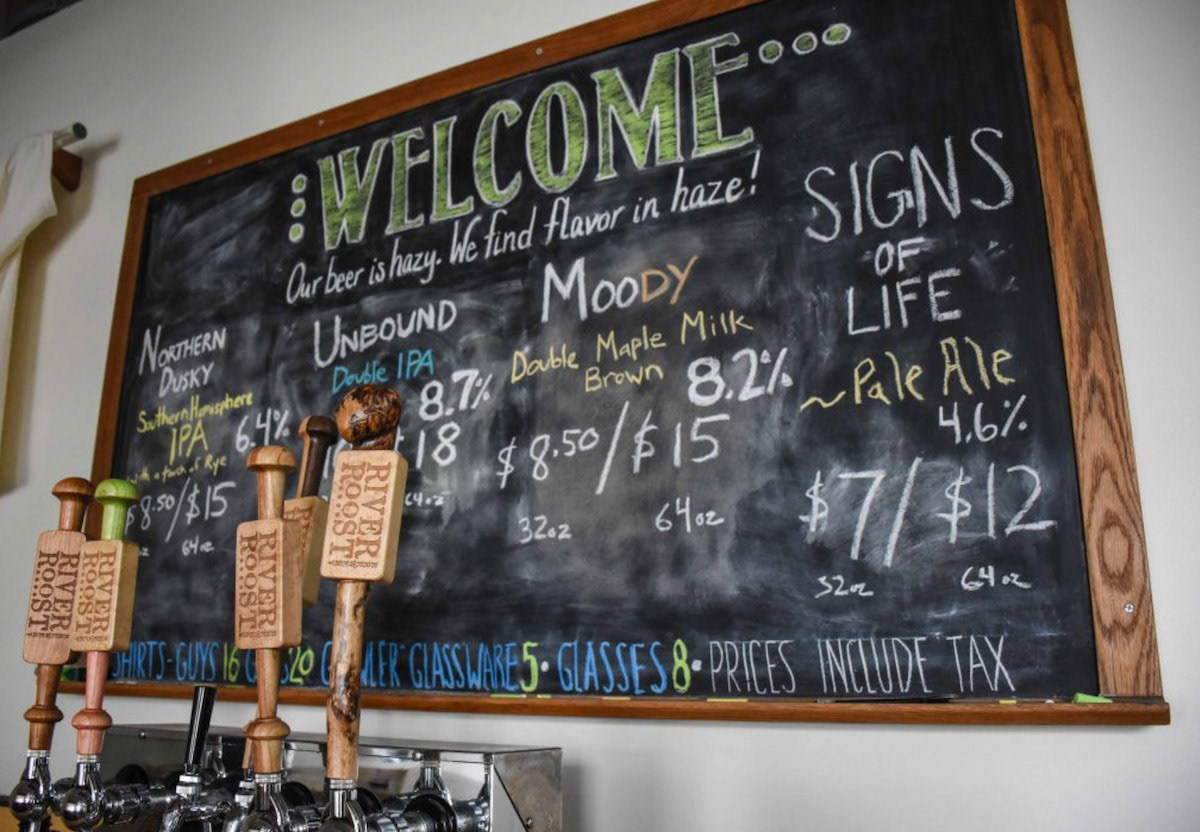 WELCOME...
Our beer is hazy. We find flavor in haze!
NORTHERN
DUSKY
Southern Hemisphere
IPA 6.4%
with a touch of Rye
$8.50/$15
64oz
UNBOUND
Double IPA
8.7%
18
64oz
MOODY
Double Maple Milk
Brown 8.2%
$8.50/$15
32oz 64oz
SIGNS
OF
LIFE
~Pale Ale
4.6%
$7/$12
32oz 64oz
SHIRTS-GUYS 16 20 GLASSWARE 5 • GLASSES 8 • PRICES INCLUDE TAX
RIVER
ROOST
RIVER
ROOST
RIVER
ROOST
RIVER
ROOST